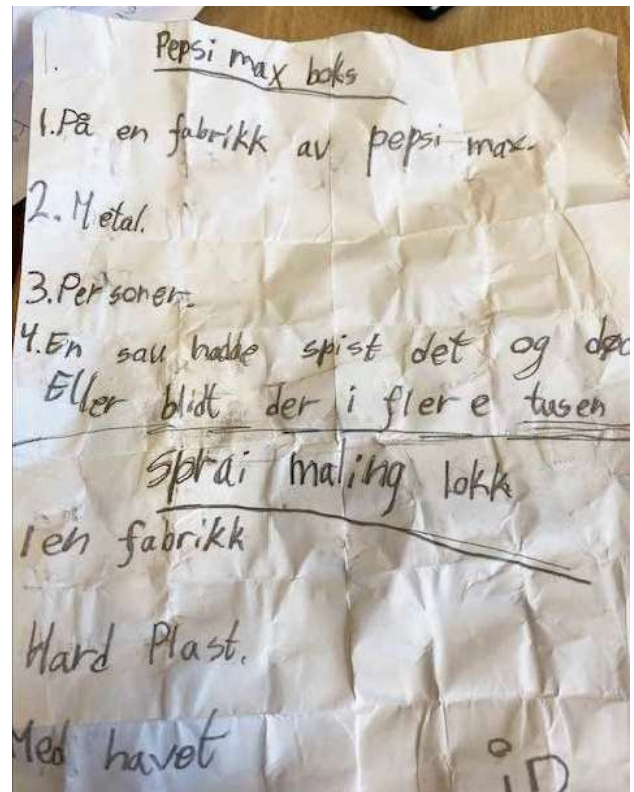 1.
Pepsi max boks
1. På en fabrikk av pepsi max.
2. Metal.
3. Personer.
4. En sau hadde spist det og død
Eller blidt der i flere tusen
Sprai maling lokk
I en fabrikk
Hard Plast.
Med havet